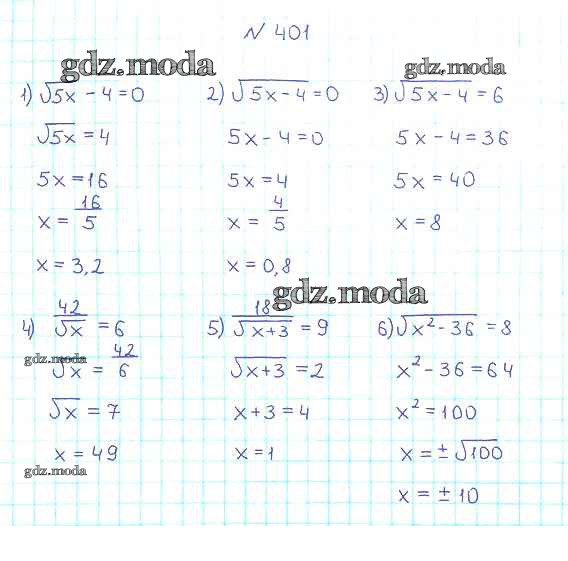 № 401
gdz.moda
gdz.moda
1) √5x - 4 = 0
√5x = 4
5x = 16
x = 16/5
x = 3,2
2) √5x - 4 = 0
5x - 4 = 0
5x = 4
x = 4/5
x = 0,8
3) √5x - 4 = 6
5x - 4 = 36
5x = 40
x = 8
gdz.moda
4) 42/√x = 6
gdz.moda
√x = 42/6
√x = 7
x = 49
gdz.moda
5) 18/√x+3 = 9
√x+3 = 2
x+3 = 4
x = 1
6) √x² - 36 = 8
x² - 36 = 64
x² = 100
x = ± √100
x = ± 10